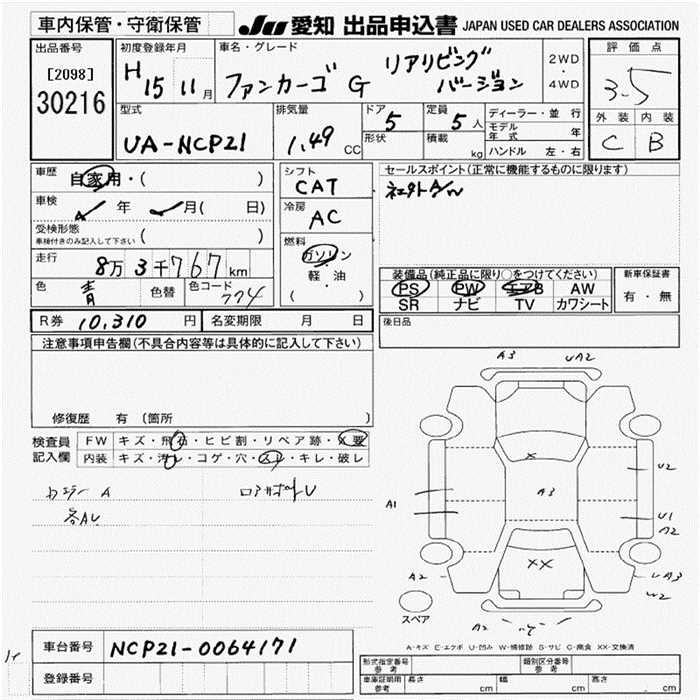 車内保管・守衛保管
JU 愛知 出品申込書 JAPAN USED CAR DEALERS ASSOCIATION
出品番号
[2098]
30216
初度登録年月
H 15 11月
車名・グレード
ファンカーゴ G リアリビング
バージョン
2WD
・
4WD
評価点
3.5
外装 内装
C B
型式
UA-NCP21
排気量
1.49 CC
ドア 5
形状
定員 5人
積載 kg
ディーラー・並行
モデル年式 年
ハンドル 左・右
車歴 自家用・( )
車検 年 月( 日)
受検形態
車検付きのみ記入して下さい ( )
走行 8万 3千767 km
色 青 色替 色コード 774
シフト
CAT
冷房
AC
燃料
ガソリン
・
軽・油
( )
セールスポイント(正常に機能するものに限ります)
装備品(純正品に限り○をつけてください)
PS PW エアB AW
SR ナビ TV カワシート
新車保証書
有・無
後日品
R券 10,310 円 名変期限 月 日
注意事項申告欄(不具合内容等は具体的に記入して下さい)
修復歴 有(箇所 )
検査員
記入欄
FW キズ・飛石・ヒビ割・リペア跡・X要
内装 キズ・汚レ・コゲ・穴・スレ・キレ・破レ
A
各AU
A3 UA2
X
A3
A1
U2
U1
A2
XX
A2
UA3
W2
A2
スペア
A-キズ E-エクボ U-凹み W-補修跡 S-サビ C-腐食 XX-交換済
車台番号 NCP21-0064171
登録番号
形式指定番号
参考
類別区分番号
参考
車庫証明用
参考
長さ cm 幅 cm 高さ cm